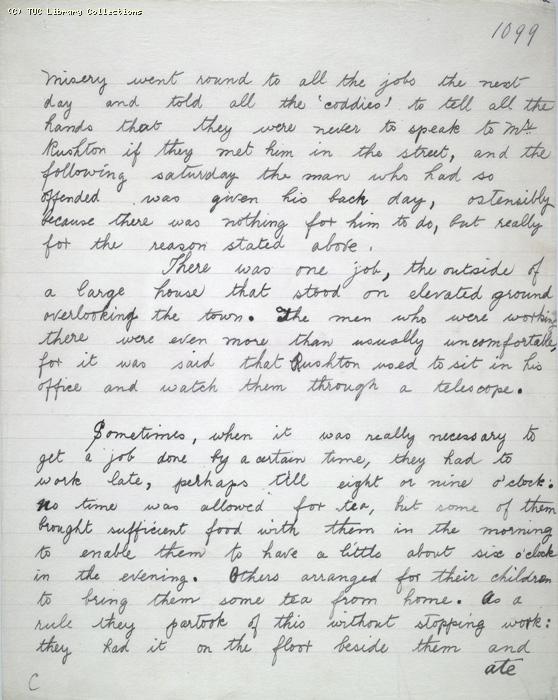 (C) TUC Library Collections
1099
Misery went round to all the jobs the next
day and told all the 'coddies' to tell all the
hands that they were never to speak to Mr
Rushton if they met him in the street, and the
following saturday the man who had so
offended was given his back day, ostensibly
because there was nothing for him to do, but really
for the reason stated above.
There was one job, the outside of
a large house that stood on elevated ground
overlooking the town. The men who were working
there were even more than usually uncomfortable,
for it was said that Rushton used to sit in his
office and watch them through a telescope.
Sometimes, when it was really necessary to
get a job done by a certain time, they had to
work late, perhaps till eight or nine o'clock:
no time was allowed for tea, but some of them
brought sufficient food with them in the morning
to enable them to have a little about six o'clock
in the evening. Others arranged for their children
to bring them some tea from home. As a
rule they partook of this without stopping work:
they had it on the floor beside them and
ate
C